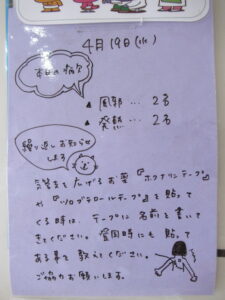 4月19日(水)
本日の病欠
▲ 風邪... 2名
▲ 発熱... 2名
繰り返しお知らせ
します
気管支を広げるお薬『ホクナリンテープ』
や『ツロブテロールテープ』を貼って
くる時は、テープに名前を書いて
きてください。登園時にも貼って
ある事を教えてください。
ご協力お願いします。